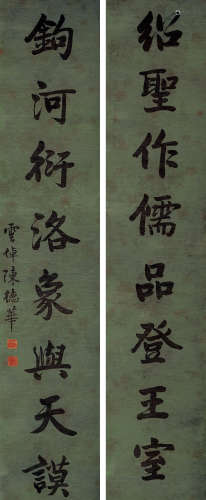 紹聖作儒品登王室
鉤河衍洛象與天謨
雲倬陳德華